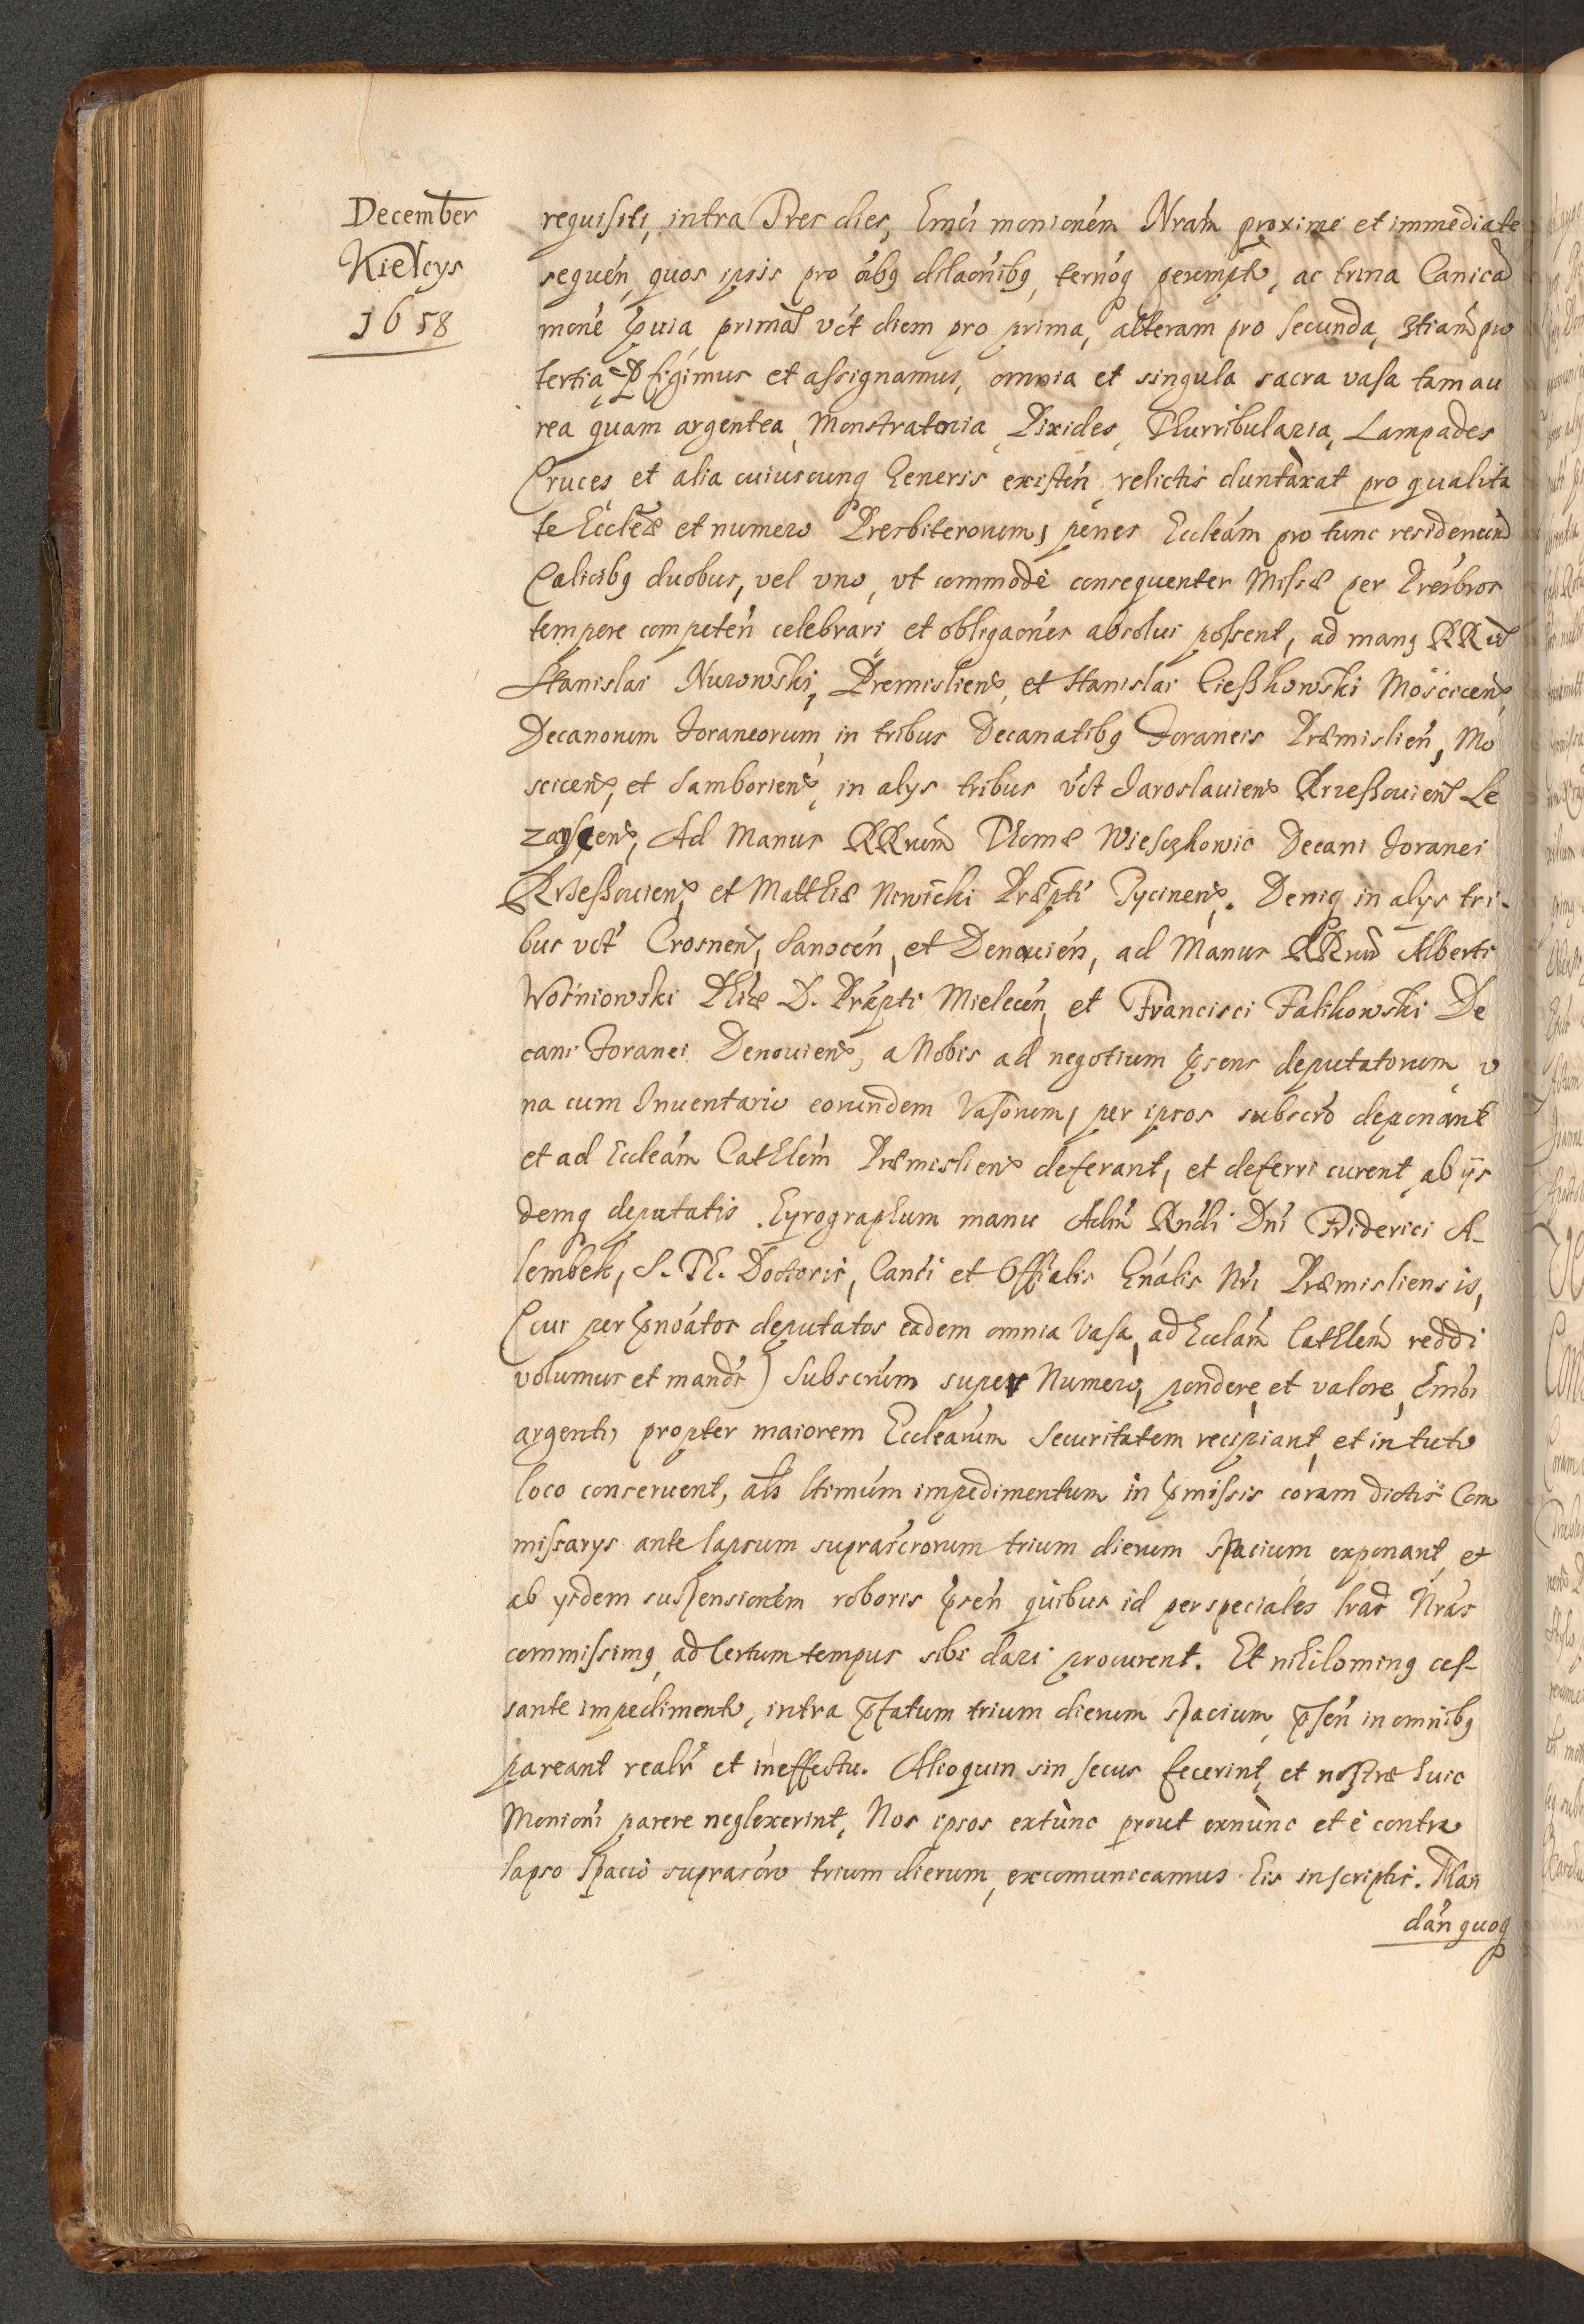 December
Kielcys
1658
requisiti, intra Tres dies, hmoi monionem Nram proxime et immediate
sequen, quos ipsis pro oibq dilaonibq, ternoq perempto, ac trina Canica
mone pvia primal vct diem pro prima, alteram pro secunda, 3tiam pro
tertia pfigimus et assignamus, omnia et singula sacra vasa tam au
rea quam argentea, Monstratoria, Pixides, Thurribularia, Lampades
Cruces, et alia cuiuscunq generis existen, relictis duntaxat pro qualita
te Eccleæ et numero Presbiterorum, penes Eccleam pro tunc residen
Calicibq duobus, vel vno, vt commodè consequenter Missæ per Presbros
tempore competen celebrari et obligaones absolui possent, ad manq RRu
Stanislai Nurowski, Premisliens, et Stanislai Cießkowski Moscicens,
Decanorum foraneorum in tribus Decanatibq foraneis Præmislien, Mo
scicens, et Samboriens, in alys tribus vct Jaroslauiens Rzeßouiens Le
zayscens, Ad Manus RRrum Thomæ Wiesczkowic Decani foranei
Rzeßouiens, et Matthiæ Nowicki Præpti Tycinens. Deniq in alys tri-
bus vct Crosnen, Sanocen, et Denouien, ad Manus RRrum Alberti
Wośniowski Phiæ D. Præpti Mielecen, et Francisci Falikowski De
cani foranei Denouiens, a Nobis ad negotium psens deputatorum v
na cum Inuentario eorundem Vasorum, per ipsos subscro deponant
et ad Eccleam Cathlem Præmisliens deferant, et deferri curent, ab ijs
demq deputatis Chyrographum manu Adm Rndi Dni Friderici A-
lembek, S. Th. Doctoris, Canci et Offialis Gnalis Nri Præmisliensis,
(cui per pnoatos deputatos eadem omnia Vasa, ad Ecclam Cathlem reddi
volumus et mands) subscrum super Numero, pondere, et valore, hmoi
argenti, propter maiorem Ecclearum securitatem recipiant, et in tuto
loco conseruent, als ltimum impedimentum in pmissis coram dictis Com
missarys ante lapsum suprascrorum trium dierum spacium exponant, et
ab ysdem suspensionem roboris psen quibus id per speciales lras Nras
commissimq, ad certum tempus sibi dari procurent. Et nihilominq ces-
sante impedimento, intra pfatum trium dierum spacium, psen in omnibq
pareant realr et in effectu. Alioquin sin secus fecerint, et nostræ huic
Monioni parere neglexerint, Nos ipsos extùnc prout exnùnc et è contra
lapso spacio suprascro trium dierum, excomunicamus his inscriptis. Man
dan quoq